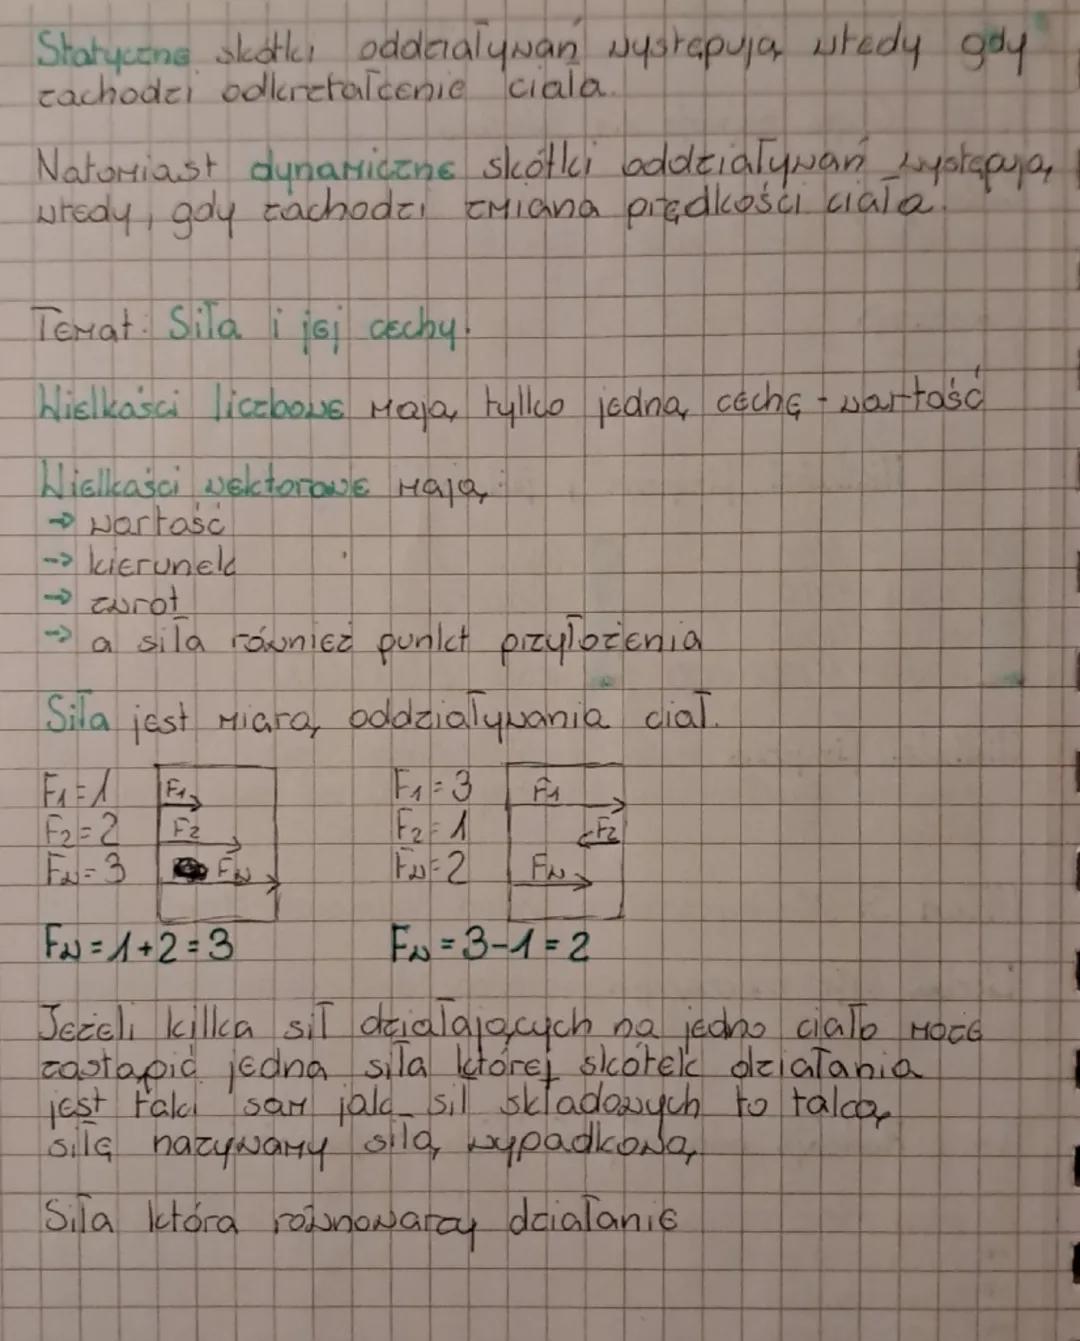 Statyczne skótki oddziaływań występują wtedy gdy
zachodzi odkształcenie ciała.
Natomiast dynamiczne skótki oddziaływań występują,
wtedy, gdy zachodzi zmiana prędkości ciała.
Temat: Siła i jej cechy.
Wielkości liczbowe mają tylko jedną cechę - wartość
Wielkości wektorowe mają:
→ wartość
→ kierunek
→ zwrot
→ a siła również punkt przyłożenia
Siła jest miarą oddziaływania ciał.
F1=1 F1
F2=2 F2
Fw=3 Fw
Fw=1+2=3
F1=3 F1
F2=1 F2
Fw=2 Fw
Fw=3-1=2
Jeżeli kilka sił działających na jedno ciało może
zastąpić jedna siła której skótek działania
jest taki sam jak sił składowych to taką
siłę nazywamy siłą wypadkową
Siła która równoważy działanie